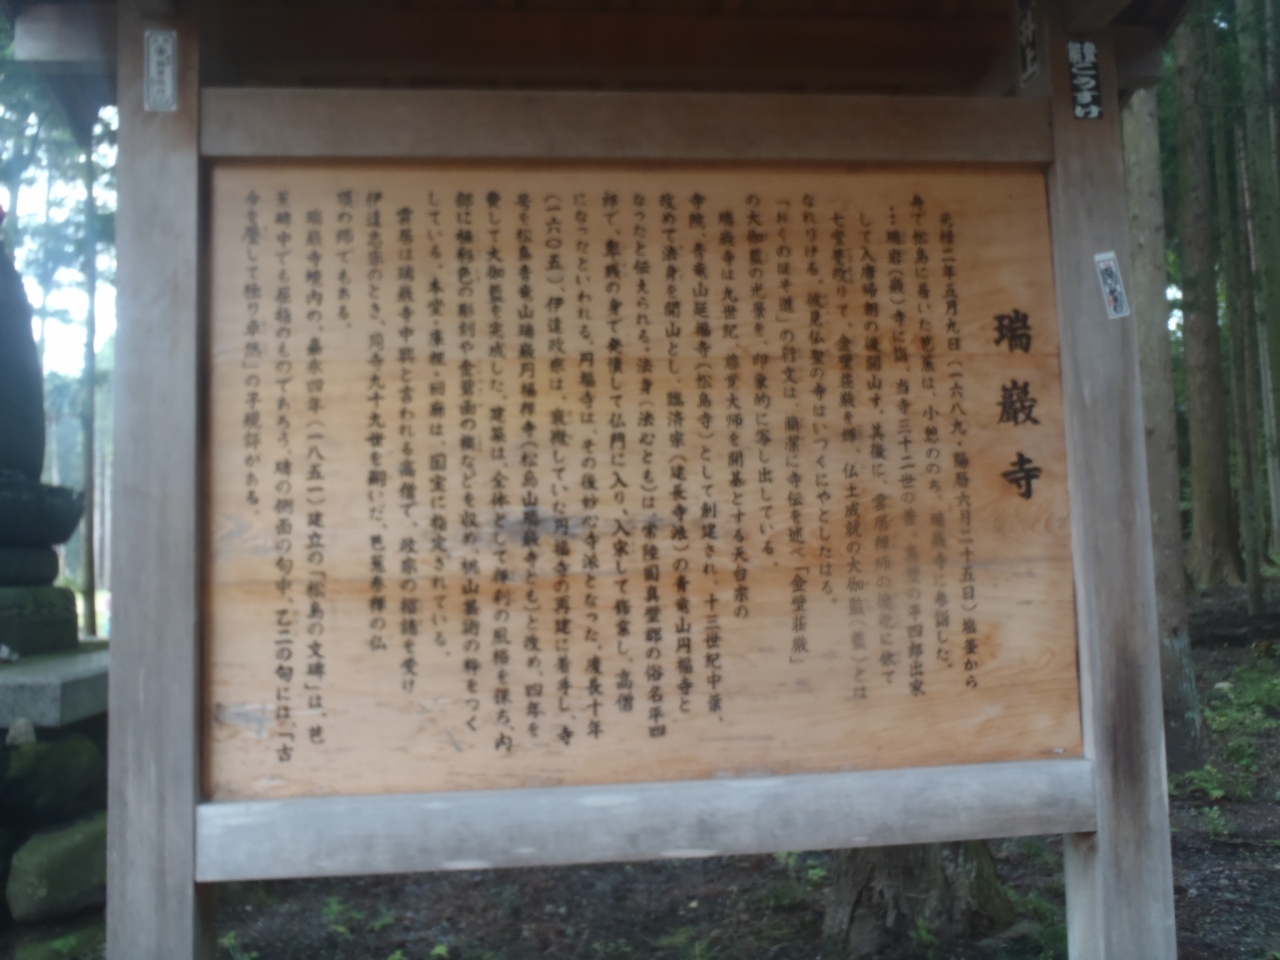 瑞巌寺
元禄二年五月九日(一六八九・陽暦六月二十五日)塩釜から
舟で松島に着いた芭蕉は、小憩ののち、瑞巌寺に参詣した。
…瑞岩(巌)寺に詣、当寺三十二世の昔、真壁の平四郎出家
して入唐帰朝の後開山す。其後に、雲居禅師の徳化に依て
七堂甍改りて、金壁荘厳を輝、仏土成就の大伽藍(藍)とは
なれりける。彼見仏聖の寺はいつくにやとしたはる。
「おくのほそ道」の行文は、簡潔に寺伝を述べ「金壁荘厳」
の大伽藍の光景を、印象的に写し出している。
瑞巌寺は九世紀、慈覚大師を開基とする天台宗の
寺院、青竜山延福寺(松島寺)として創建され、十三世紀中葉、
改めて法身を開山とし、臨済宗(建長寺派)の青竜山円福寺と
なったと伝えられる。法身(法心とも)は、常陸国真壁郡の俗名平四
郎で、卑賤の身で発憤して仏門に入り、入宋して修業し、高僧
になったといわれる。円福寺は、その後妙心寺派となった。慶長十年
(一六〇五)、伊達政宗は、衰微していた円福寺の再建に着手し、寺
号を松島青竜山瑞巌円福禅寺(松島山瑞巌寺とも)と改め、四年を
費して大伽藍を完成した。建築は、全体として禅刹の風格を保ち、内
部に極彩色の彫刻や金壁画の襖などを収め、桃山芸術の粋をつく
している。本堂・庫裡・回廊は、国宝に指定されている。
雲居は瑞巌寺中興と言われる高僧で、政宗の招請を受け
伊達忠宗のとき、同寺九十九世を嗣いだ。芭蕉参禅の仏
頂の師でもある。
瑞巌寺境内の、嘉永四年(一八五一)建立の「松島の文碑」は、芭
蕉碑中でも屈指のものであろう。碑の側面の句中、乙二の句には、「古
今を圧して独り卓然」の子規評がある。